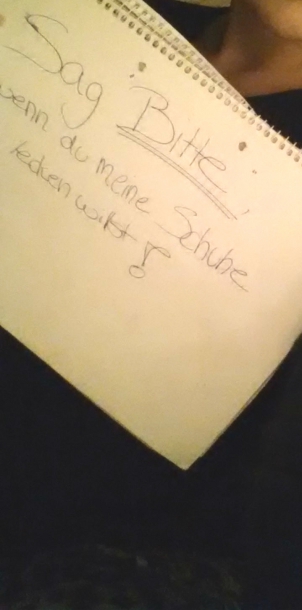 Sag Bitte,
wenn du meine Schuhe
lecken willst!